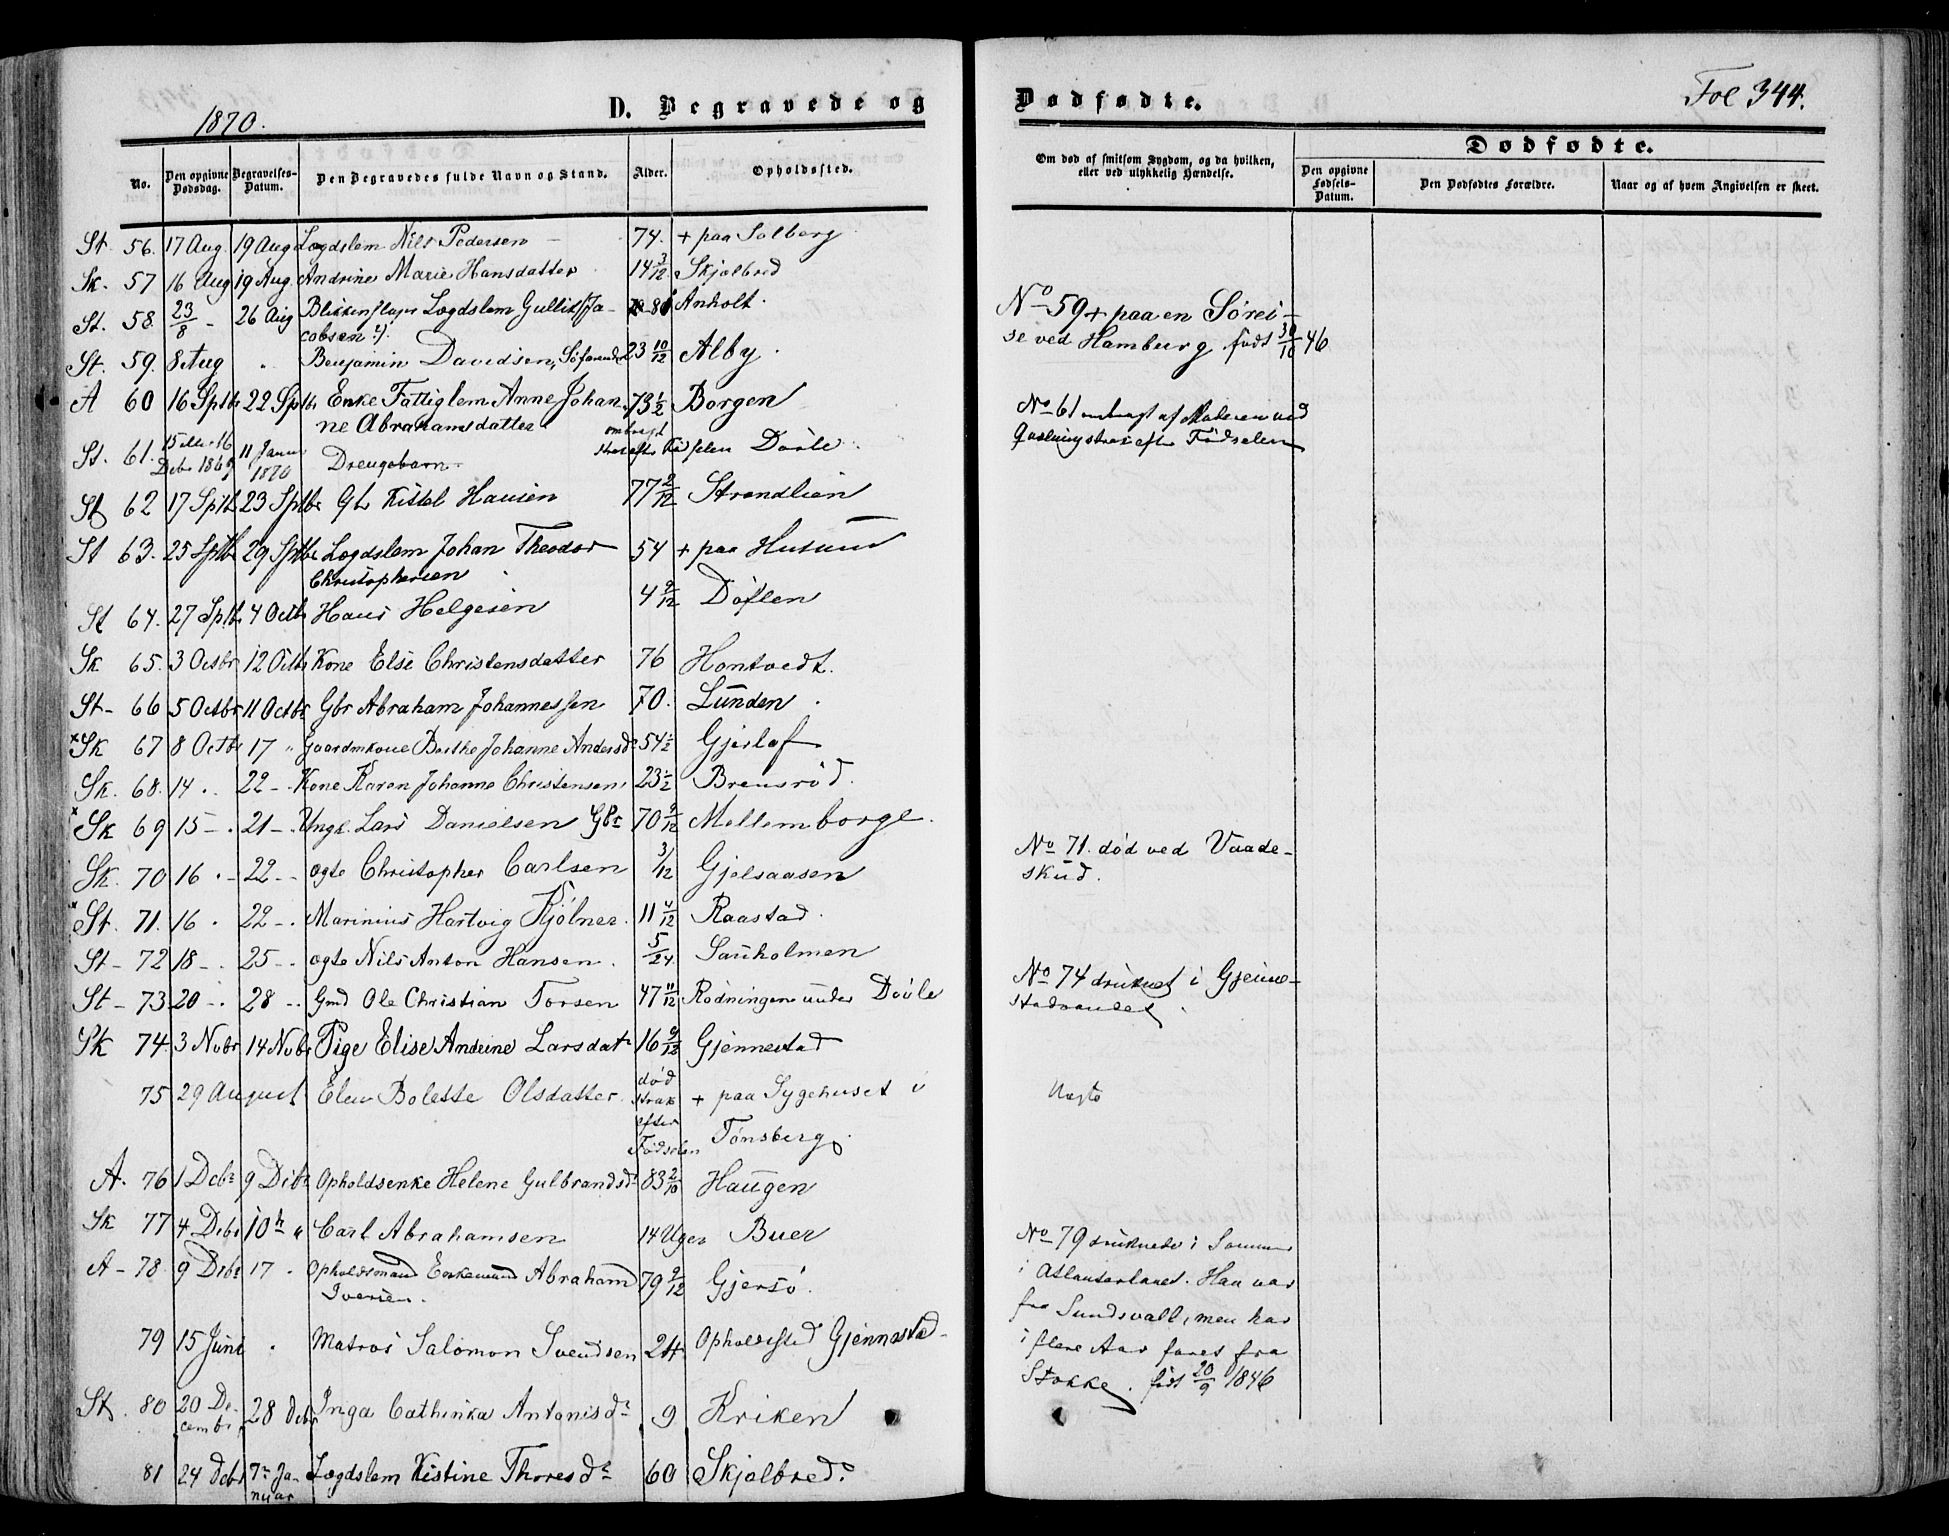 1870.
D. Begravede og
Dødfødte.
Fol 344.
No.
Den opgivne Dødsdag.
Begravelses-Datum.
Den Begravedes fulde Navn og Stand.
Alder.
Opholdssted.
Om død af smitsom Sygdom, og da hvilken, eller ved ulykkelig Hændelse.
Dødfødte.
Den opgivne Fødsels-Datum.
Den Dødfødtes Forældre.
Naar og af hvem Angivelsen er skeet.
St. 56. 17 Aug. 19 Aug Lægdslem Nils Pedersen 74. + paa Solberg
Sk. 57 16 Aug 19 Aug. Andrine Marie Hansdatter 14 3/12 Skjelbred
St. 58. 23/8 - 26 Aug Lægdslem Gullik Ja- Anholt.
cobsen
St. 59. 8 Aug Benjamin Davidsen, 23 10/12 Alby.
A 60 16 Sptbr 22 Sptbr Enke Fattiglem Anne Johan 73 1/2 Borgen
ne Abrahamsdatter
St. 61. Debr 1869 11 Januar 1870 Drengebarn Døvle
St 62 17 Sptb 23 Sptbr Gbr Kittel Hansen 77 2/12 Strandlien
St 63. 25 Sptb 29 Sptbr Lægdslem Johan Theodor 54 + paa Husum
Christophersen
St 64. 27 Sptb 4 Octbr Hans Helgesen 4 9/12 Døflen
Sk 65. 3 Octbr 12 Octbr Kone Else Christensdatter 76 Hontvedt.
St- 66 5 Octbr 11 Octbr Gbr Abraham Johannessen 70. Lunden
Sk 67 8 Octbr 17 " Gaardmkone Berthe Johanne Andersdr 54 1/2 Gjerlaf
Sk. 68. 14 22 - Kone Karen Johanne Christensen 23 1/2 Bremsrød.
Sk 69 15 - 21 - Ungk. Lars Danielsen Gbr 70 9/12 Mellemborge.
Sk. 70 16 - 22 - ægte Christopher Carlsen 3/12 Gjelsaasen
St. 71. 16 22 - Marinius Hartvig Kjølner 11 4/12 Raastad.
St- 72 18 - 25 - ægte Nils Anton Hansen 5/24 Sauholmen
St- 73 20 - 28 - Gmd Ole Christian Torsen 47 11/12 Rødningen under Døvle
Sk 74. 3 Novbr 14 Novbr Pige Elise Andrine Larsdatr 16 9/12 Gjennestad
75 29 August Elen Bolette Olsdatter død strax efter Fødselen + paa Sygehuset i
Tønsberg.
A. 76 1 Debr 9 Debr Opholdsenke Helene Gulbrandsdr 83 2/10 Haugen
Sk 77 4 Debr 10 " Carl Abrahamsen 14 Uger Buer
A - 78. 9 Debr 17 Opholdsmand Enkemand Abraham 79 2/12 Gjersø.
Iversen.
79 15 Juni Matros Salomon Svendsen 24 Opholdssted Gjennestad
St. 80 20 De- 28 Debr Inga Cathinka Antonisdr 9 Kriken
cembr
81 24 Debr 7 Ja- Lægdslem Kistine Thoresdr 60 Skjelbred.
nuar
No 59 + paa en Sørei-
se ved Hamburg født 30/10 46
No 61 ombragt af Moderen ved
Qvælning strax efter Fødselen
No 71. død ved Vaade-
skud.
No 74 druknet i Gjenne-
stadvandet.
Uægte
No 79 druknede i Sommer
i Atlanterhavet. Han var
fra Sundsvall, men har
i flere Aar faret fra
Stokke. født 20/9 1846